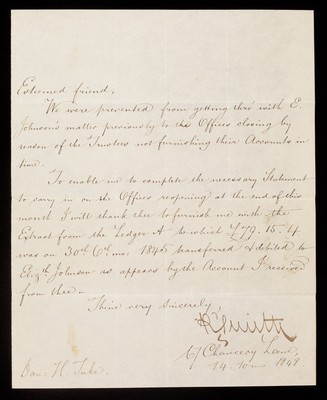 Esteemed friend,
We were prevented from getting thro' with E.
Johnson's matter previously to the Offices closing by
reason of the Trustees not furnishing their Accounts in
time.
To enable me to complete the necessary Statement
to carry in on the Offices reopening at the end of this
month I will thank thee to furnish me with the
Extract from the Ledger A to which £79. 15. 4
was on 30th 6th mo: 184 transferred & debited to
Elizth Johnson as appears by the Account I received
from thee.—
Thine very sincerely,
Smith
67 Chancery Lane,
14. 10 1847
Dan: H. Tuke.